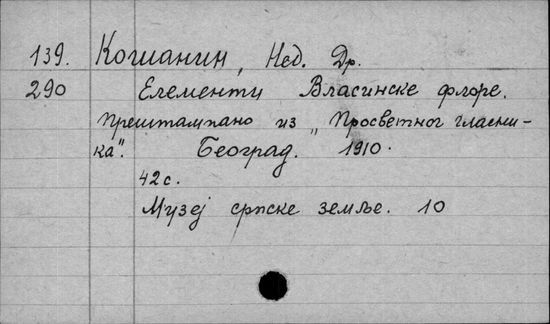 139. Кошанин, Нед. Др.
290 Елементи Власинске флоре.
прештампано из „Просветног гласни-
ка". Београд. 1910.
42 с.
Музеј српске земље. 10